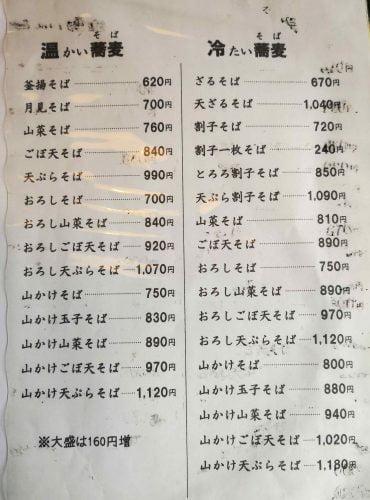 温かい蕎麦
そば
釜揚そば 620円
月見そば 700円
山菜そば 760円
ごぼ天そば 840円
天ぷらそば 990円
おろしそば 700円
おろし山菜そば 840円
おろしごぼ天そば 920円
おろし天ぷらそば 1,070円
山かけそば 750円
山かけ玉子そば 830円
山かけ山菜そば 890円
山かけごぼ天そば 970円
山かけ天ぷらそば 1,120円
※大盛は160円増
冷たい蕎麦
そば
ざるそば 670円
天ざるそば 1,040円
割子そば 720円
割子一枚そば 240円
とろろ割子そば 850円
天ぷら割子そば 1,090円
山菜そば 810円
ごぼ天そば 890円
おろしそば 750円
おろし山菜そば 890円
おろしごぼ天そば 970円
おろし天ぷらそば 1,120円
山かけそば 800円
山かけ玉子そば 880円
山かけ山菜そば 940円
山かけごぼ天そば 1,020円
山かけ天ぷらそば 1,180円